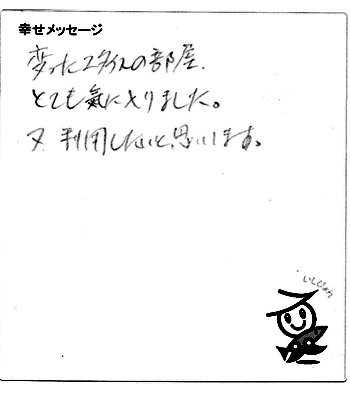 幸せメッセージ
変ったスタイルの部屋、
とても気に入りました。
又利用したいと思います。